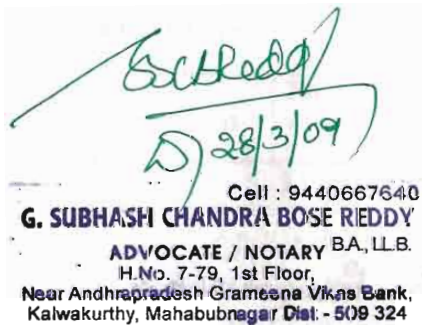 SSCBReddy
D) 28/3/09
Cell : 9440667640
G. SUBHASH CHANDRA BOSE REDDY
ADVOCATE / NOTARY B.A., LL.B.
H.No. 7-79, 1st Floor,
Near Andhrapradesh Grameena Vikas Bank,
Kalwakurthy, Mahabubnagar Dist - 509 324